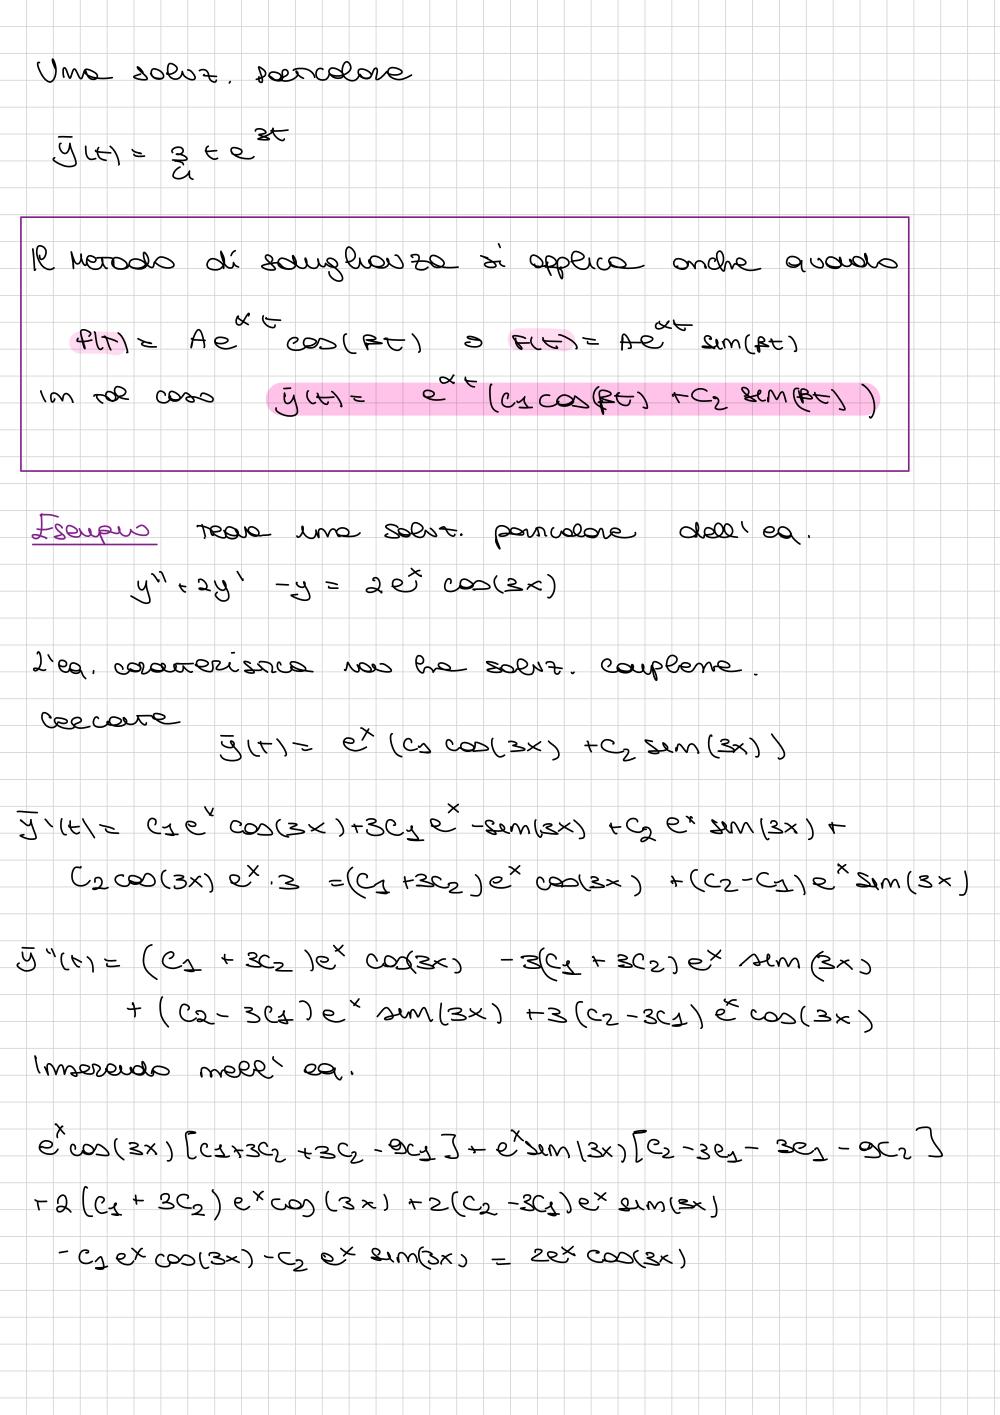 Una soluz. particolare
ȳ(t) = 3/4 t e^{3t}
Il metodo di somiglianza si applica anche quado
f(t) = A e^{αt} cos(βt) o f(t) = A e^{αt} sen(βt)
in tal caso ȳ(t) = e^{αt} (c1 cos(βt) + c2 sen(βt))
Esempio trova una soluz. particolare dell' eq.
y'' + 2y' - y = 2e^x cos(3x)
L'eq. caratteristica non ha soluz. complesse.
cercare
ȳ(t) = e^x (c1 cos(3x) + c2 sen(3x))
ȳ'(t) = c1 e^x cos(3x) + 3c1 e^x - sen(3x) + c2 e^x sen(3x) +
c2 cos(3x) e^x · 3 = (c1 + 3c2) e^x cos(3x) + (c2 - c1) e^x sen(3x)
ȳ''(t) = (c1 + 3c2) e^x cos(3x) - 3(c1 + 3c2) e^x sen(3x)
+ (c2 - 3c1) e^x sen(3x) + 3(c2 - 3c1) e^x cos(3x)
Inserendo nell' eq.
e^x cos(3x) [c1 + 3c2 + 3c2 - 9c1] + e^x sen(3x) [c2 - 3c1 - 3c1 - 9c2]
+ 2(c1 + 3c2) e^x cos(3x) + 2(c2 - 3c1) e^x sen(3x)
- c1 e^x cos(3x) - c2 e^x sen(3x) = 2e^x cos(3x)